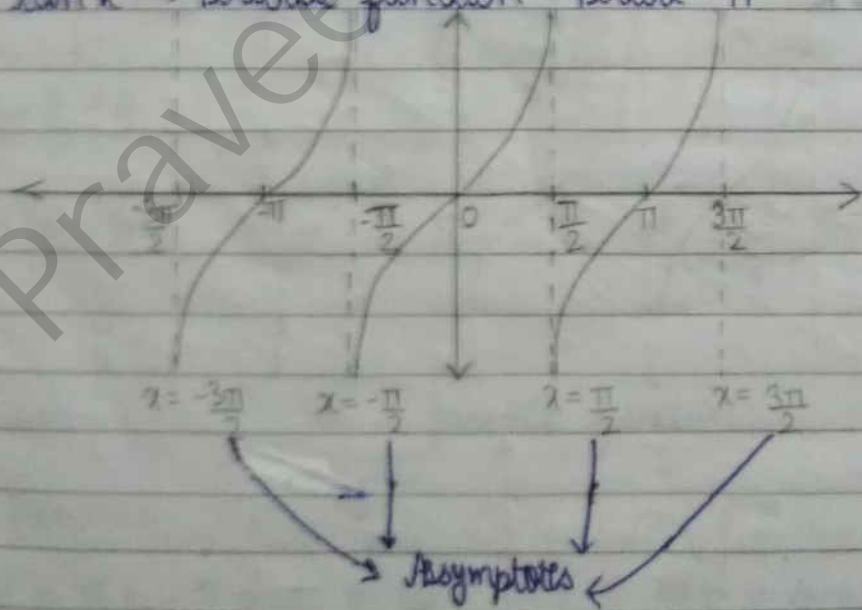 Pravee
-3π/2 -π -π/2 0 π/2 π 3π/2
x = -3π/2 x = -π/2 x = π/2 x = 3π/2
Assymptotes